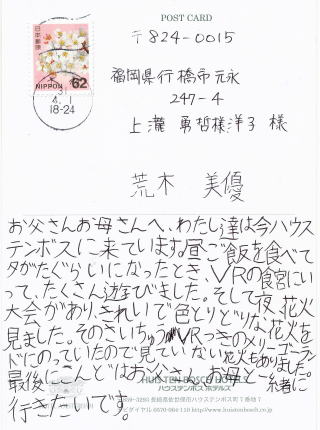 POST CARD
〒824-0015
日本郵便
NIPPON 62
31
4.1
18-24
福岡県行橋市元永
247-4
上瀧 勇哲様洋子様
荒木 美優
お父さんお母さんへ、わたし達は今ハウス
テンボスに来ています。昼ご飯を食べて
夕がたぐらいになったとき、VRの食宮にい
って、たくさん遊びました。そして夜、花火
大会があり、きれいで色とりどりな花火を
見ました。そのさいちゅうVRつきのメリーゴーラン
ドにのっていたので見ていない花火もありました。
最後にこんどはお父さん、お母と一緒に
行きたいです。
HUIS TEN BOSCH HOTELS
ハウステンボス ホテルズ
長崎県佐世保市ハウステンボス町7番地7
ナビダイヤル 0570-064-110 http://www.huistenbosch.co.jp